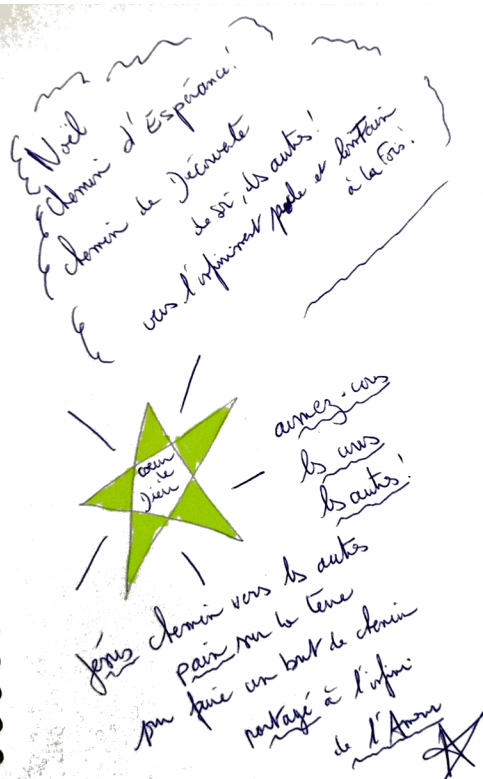 Noël
chemin d'Espérance!
chemin de Découverte
de soi, des autres!
vers l'infiniment proche et lointain
à la Fois!
coeur
de
Dieu
aimez-vous
les uns
les autres!
Jésus chemin vers les autres
pain sur la terre
pour faire un bout de chemin
partagé à l'infini
de l'Amour